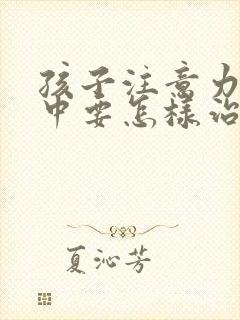 孩子注意力
中要怎样治
夏沁芳